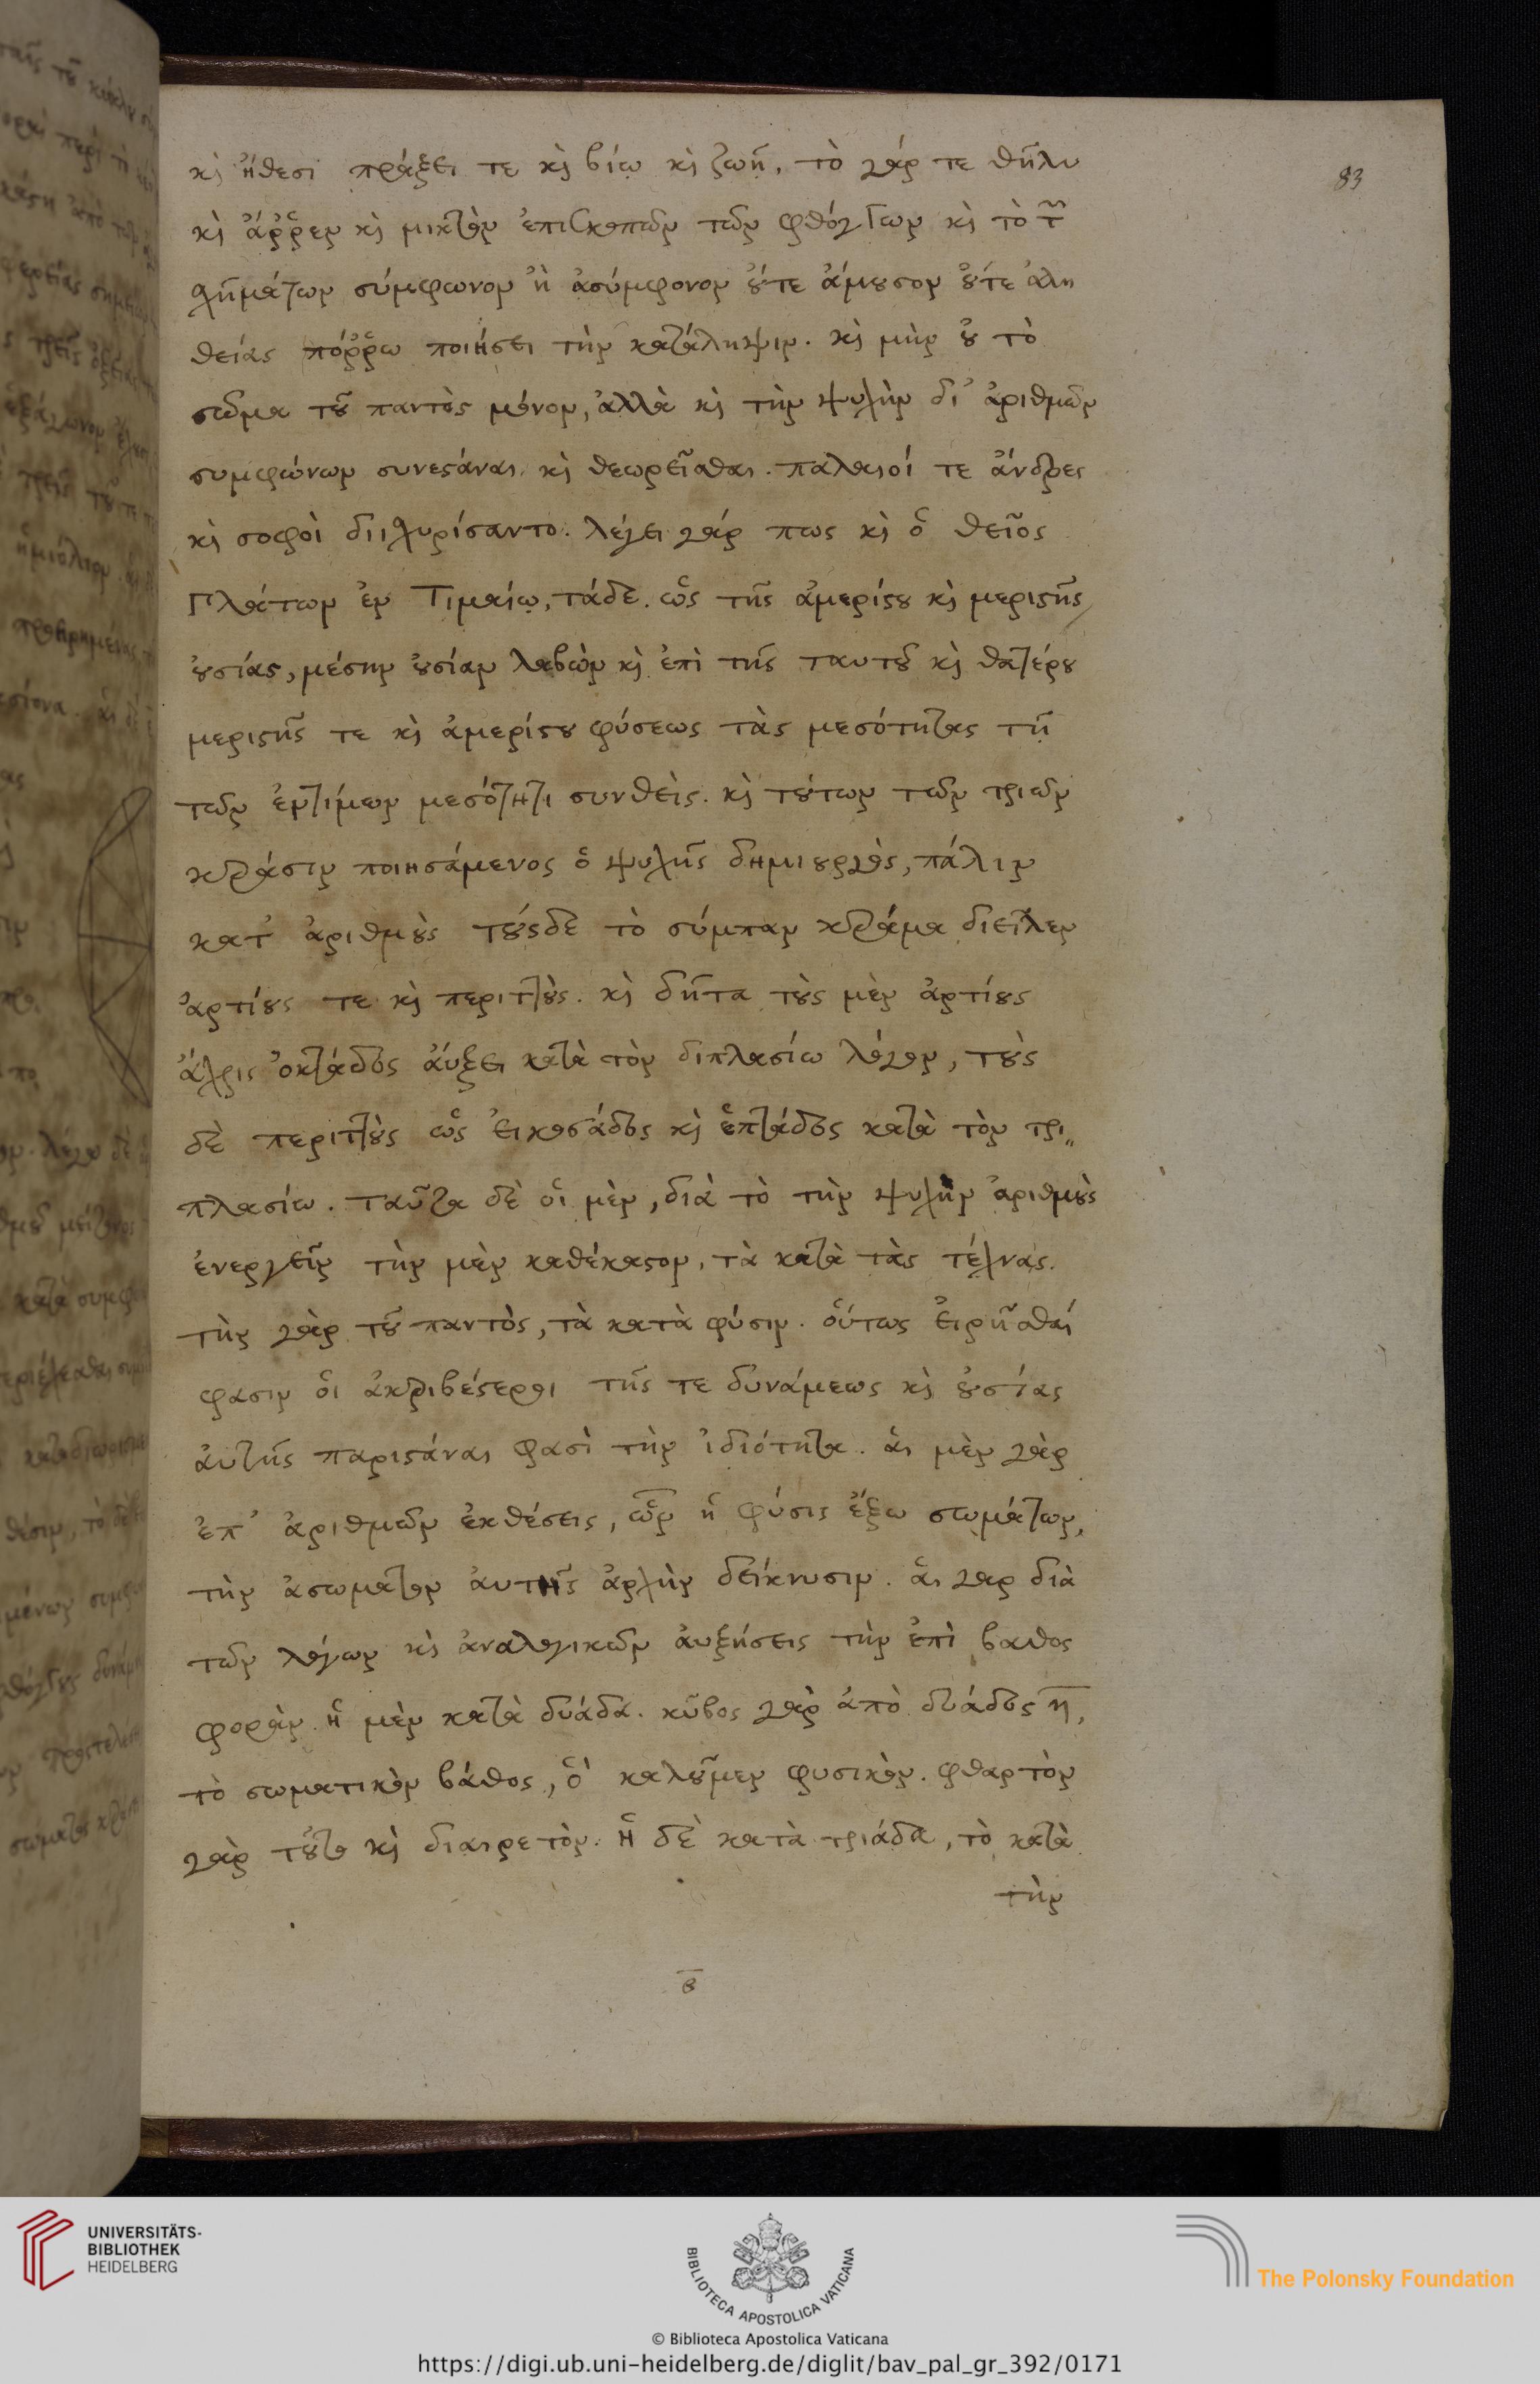 κὶ ἤθεσι πράξει τε κὶ βίῳ κὶ ζωῇ, τὸ γάρ τε θῆλυ
83
κὶ ἄῤῥεν κὶ μικτὸν ἐπισκοπῶν τῶν φθόγγων κὶ τὸ τ͂
χημάτων σύμφωνον ἢ ἀσύμφονον ὄυτε ἄμουσον ὄυτε ἀλη
θείας πόῤῥω ποιήσει τὴν κατάληψιν. κὶ μὴν ὀυ τὸ
σῶμα τοῦ παντὸς μόνον, ἀλλὰ κὶ τὴν ψυχὴν δι' ἀριθμῶν
συμφώνων συνεστάναι κὶ θεωρεῖσθαι. παλαιοί τε ἄνδρες
κὶ σοφοὶ διιχυρίσαντο. λέγει γάρ πως κὶ ὁ θεῖος
Πλάτων ἐν Τιμαίῳ, τάδε. ὡς τῆς ἀμερίστου κὶ μεριστῆς
ὀυσίας, μέσην ὀυσίαν λαβὼν κὶ ἐπὶ τῆς ταυτοῦ κὶ θατέρου
μεριστῆς τε κὶ ἀμερίστου φύσεως τὰς μεσότητας τῇ
τῶν ἐντίμων μεσότητι συνθεὶς. κὶ τούτων τῶν τριῶν
κρᾶσιν ποιησάμενος ὁ ψυχῆς δημιουργὸς, πάλιν
κατ' ἀριθμοὺς τούσδε τὸ σύμπαν κράμα διεῖλεν
ἀρτίους τε κὶ περιττοὺς. κὶ δῆτα τοὺς μὲν ἀρτίους
ἄχρις ὀκτάδος ἄυξει κατὰ τὸν διπλασίω λόγον, τοὺς
δὲ περιττοὺς ὡς ἐικοσάδος κὶ ἑπτάδος κατὰ τὸν τρι„
πλασίω. ταῦτα δὲ οἱ μὲν, διὰ τὸ τὴν ψυχὴν ἀριθμοὺς
ἐνεργεῖν τὴν μὲν καθέκαστον, τὰ κατὰ τὰς τέχνας.
τὴν γὰρ τοῦ παντὸς, τὰ κατὰ φύσιν. ὅυτως ἐιρῆσθαί
φασιν ὁι ἀκριβέστεροι τῆς τε δυνάμεως κὶ ὀυσίας
ἀυτῆς παριστάναι φασὶ τὴν ἰδιότητα. ἁι μὲν γὰρ
ἐπ' ἀριθμῶν ἐκθέσεις, ὧν ἡ φύσις ἔξω σωμάτων,
τὴν ἀσωμάτον ἀυτῆς ἀρχὴν δείκνυσιν. ἁι γαρ διὰ
τῶν λόγων κὶ ἀναλογικῶν ἀυξήσεις τὴν ἐπὶ βαθος
φορὰν. ἡ μὲν κατὰ δυάδα. κῦβος γὰρ ἀπὸ δυάδος η̅,
τὸ σωματικὸν βάθος, ὃ καλοῦμεν φυσικὸν. φθαρτὸν
γὰρ τοῦτο κὶ διαιρετὸν. ἡ δὲ κατὰ τριάδα, τὸ κατὰ
τὴν
β̅
UNIVERSITÄTS-
BIBLIOTHEK
HEIDELBERG
BIBLIOTECA APOSTOLICA VATICANA
The Polonsky Foundation
© Biblioteca Apostolica Vaticana
https://digi.ub.uni-heidelberg.de/diglit/bav_pal_gr_392/0171